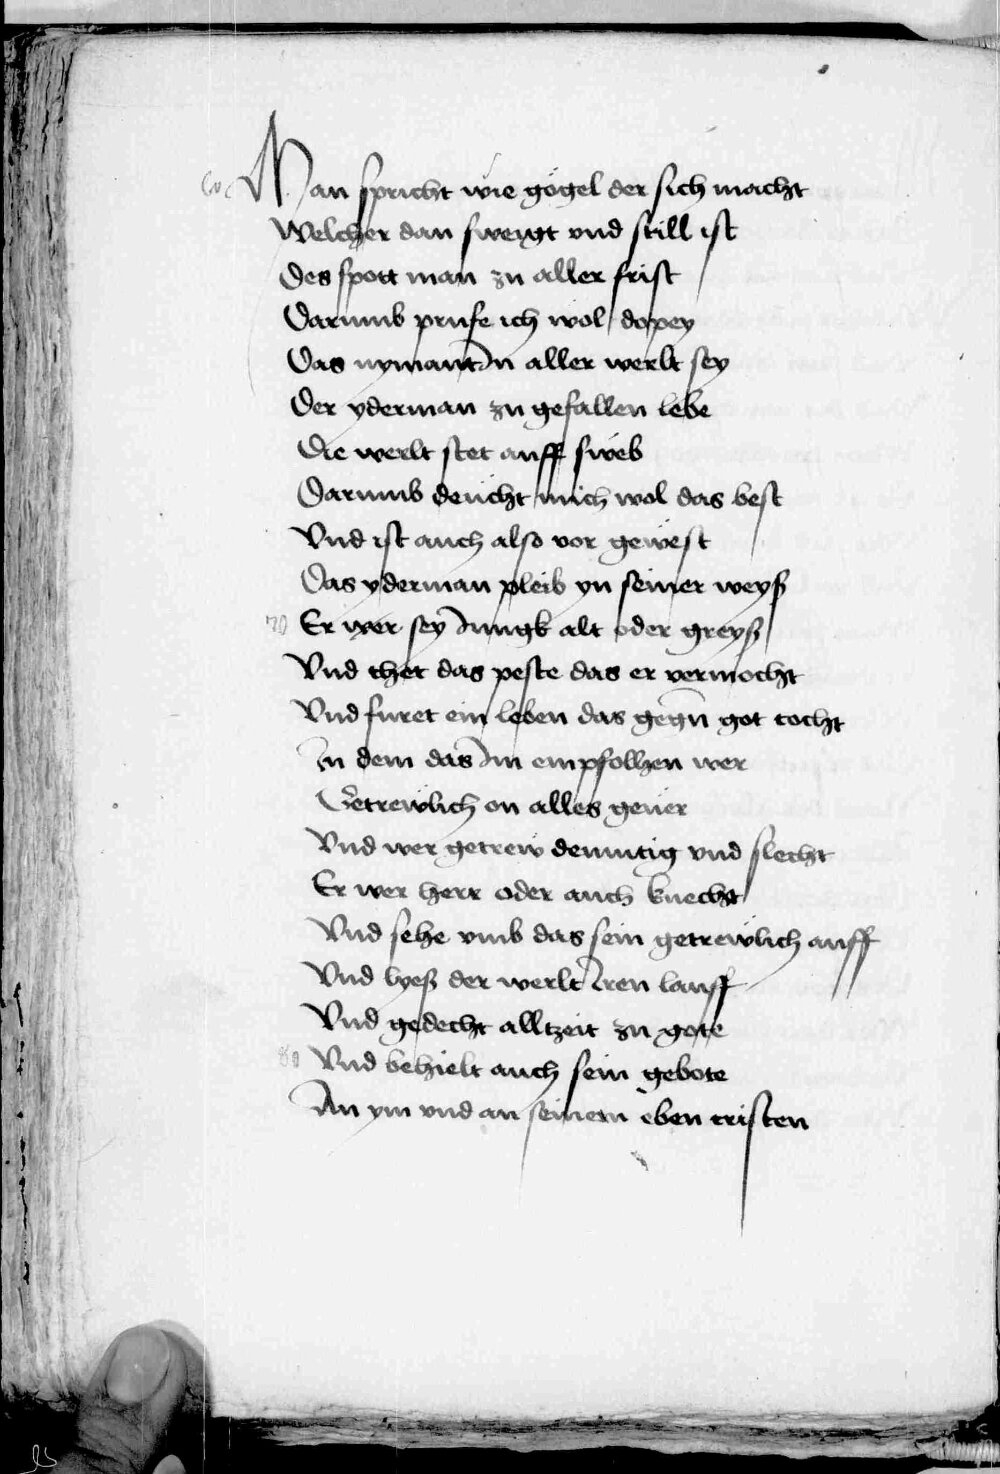 Man spricht wie gögel der sich macht
Welcher dan sweigt vnd still ist
Des spott man zu aller frist
Darumb prufe ich wol dopey
Das nymant In aller werlt sey
Der yderman zu gefallen lebe
Die werlt stet auff sweb
Darumb deucht mich wol das best
Vnd ist auch also vor gewest
Das yderman pleib yn seiner weyß
70 Er wer sey Jungk alt oder greyß
Vnd thet das peste das er vermocht
Vnd furet ein leben das gegn got tocht
In dem das Im empfolhen wer
Getrewlich on alles gever
Vnd wer getrew demutig vnd slecht
Er wer herr oder auch knecht
Vnd sehe vmb das sein getrewlich auff
Vnd lyeß der werlt Iren lauff
Vnd gedecht alltzeit zu gote
80 Vnd behielt auch sein gebote
An ym vnd an seinem eben cristen